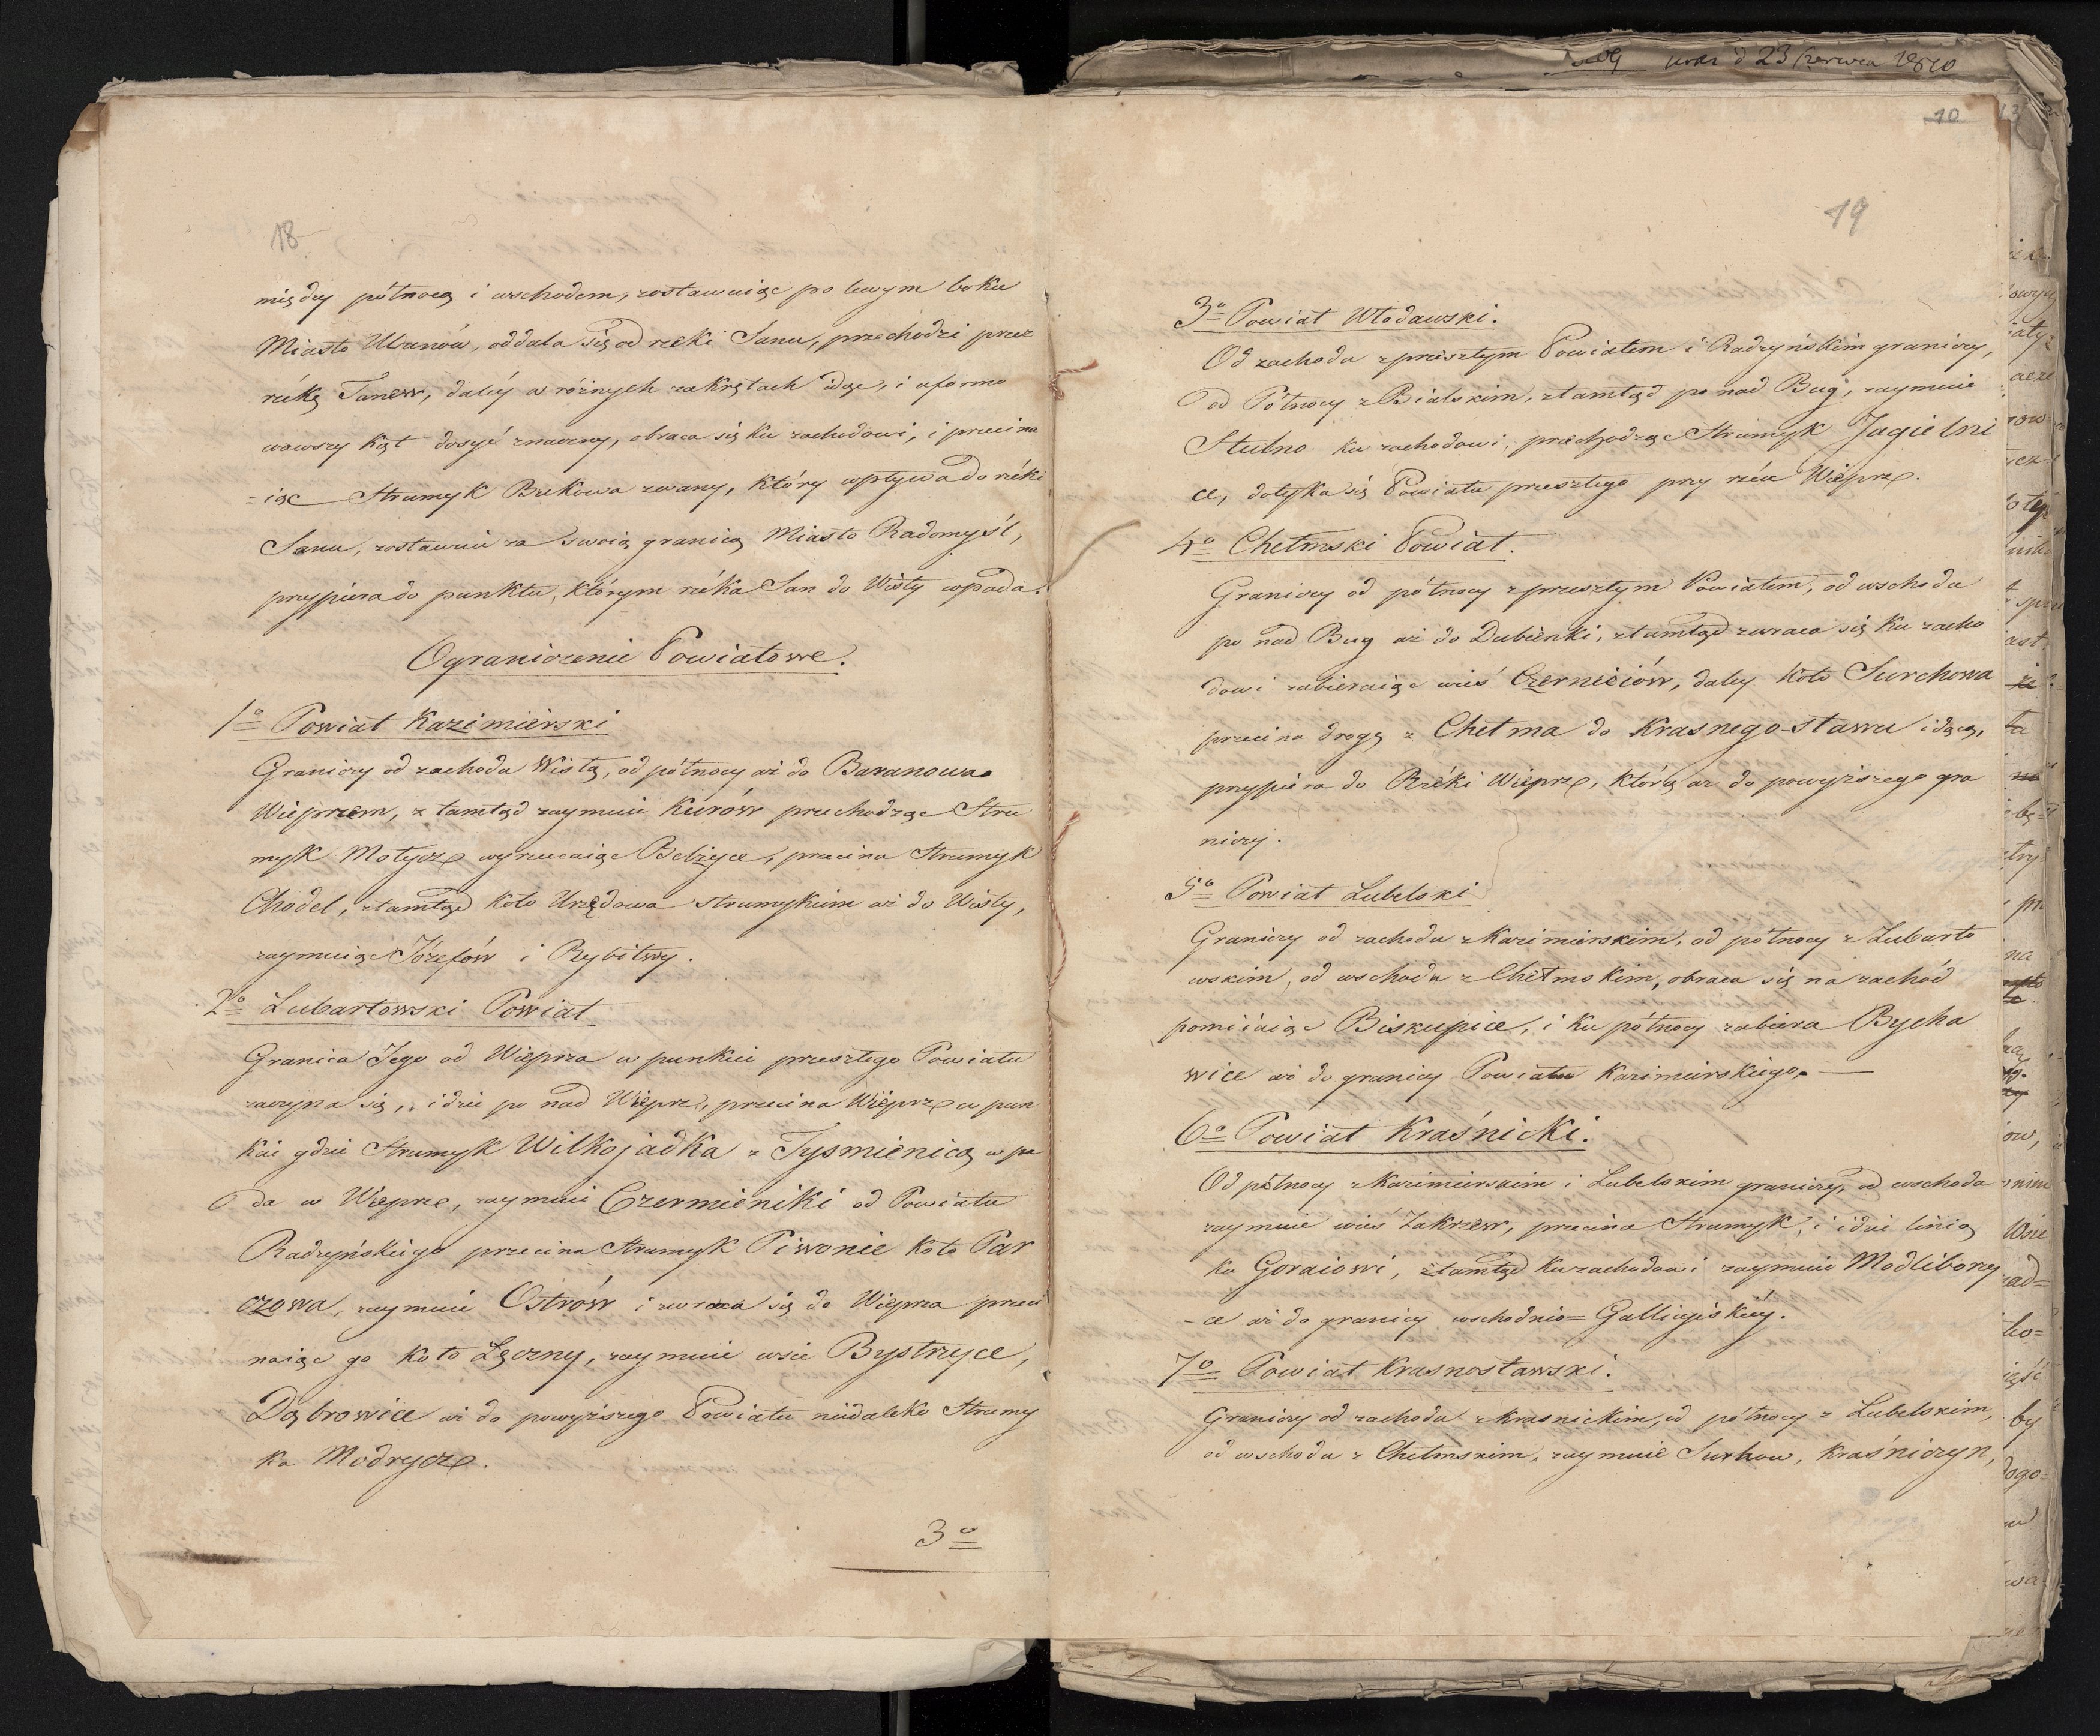 18
między północą i wschodem, zostawuiąc po lewym boku
Miasto Ulanów, oddala się od rzeki Sanu, przechodzi przez
rzékę Tanew, daléy w różnych zakrętach idąc, i uformo
wawszy kąt dosyć znaczny, obraca się ku zachodowi, i przecina
=iąc Strumyk Bukowa zwany, który wpływa do rzéki
Sanu, zostawuie za swoią granicą Miasto Radomyśl,
przypiera do punktu, którym rzéka San do Wisły wpada.
Ograniczenie Powiatowe.
1o Powiat Kazimierski
Graniczy od zachodu Wisłą, od północy aż do Baranowa
Wieprzem, z tamtąd zaymuie Kurów przechodząc Stru
myk Motycze wyrzucaiąc Bełżyce, przecina Strumyk
Chodel, ztamtąd koło Urzędowa strumykiem aż do Wisły,
zaymuiąc Józefów i Rybitwy.
2o Lubartowski Powiat
Granica Jego od Wieprza w punkcie przeszłego Powiatu
zaczyna się, idzie po nad Wieprz, przecina Wieprz w pun
kcie gdzie Strumyk Wilkojadka z Tysmienicą wpa
da w Wieprz, zaymuie Czermieniki od Powiatu
Radzyńskiego przecina Strumyk Piwonie koło Par
czowa, zaymuie Ostrów i zwraca się do Wieprza przeci
naiąc go koło Łęczny, zaymuie wsie Bystrzyce,
Dąbrowice aż do powyższego Powiatu niedaleko Strumy
ka Modrycze.
3o
23 Czerwca 1810
10
13
19
3o Powiat Włodawski.
Od zachodu z przeszłym Powiatem i Radzyńskim graniczy,
od Północy z Bialskim, ztamtąd po nad Bug, zaymuie
Stulno ku zachodowi, przechodząc Strumyk Jagielni
ce, dotyka się Powiatu przeszłego przy rzéce Wieprz.
4o Chełmski Powiat.
Graniczy od północy z przeszłym Powiatem, od wschodu
po nad Bug aż do Dubienki, ztamtąd zwraca się ku zacho
dowi zabieraiąc wieś Czernieiów, daley koło Surchowa
przecina drogę z Chełma do Krasnego-stawu idącą,
przypiera do Rzéki Wieprz, którą aż do powyższego gra
niczy.
5o Powiat Lubelski
Graniczy od zachodu z Kazimierskim, od północy z Lubarto
wskim, od wschodu z Chełmskim, obraca się na zachód
pomiiaiąc Biskupice, i ku północy zabiera Bycha
wice aż do granicy Powiatu Kazimierskiego.
6o Powiat Kraśnicki.
Od północy z Kazimierskim i Lubelskim graniczy, od wschodu
zaymuie wieś Zakrzew, przecina Strumyk, i idzie linią
ku Goraiowi, ztamtąd ku zachodowi zaymuie Modliborzy
-ce aż do granicy wschodnio=Gallicyiskiéy.
7o Powiat Krasnostawski.
Graniczy od zachodu z Krasnickim, od północy z Lubelskim,
od wschodu z Chełmskim, zaymuie Surhow, Kraśniczyn,